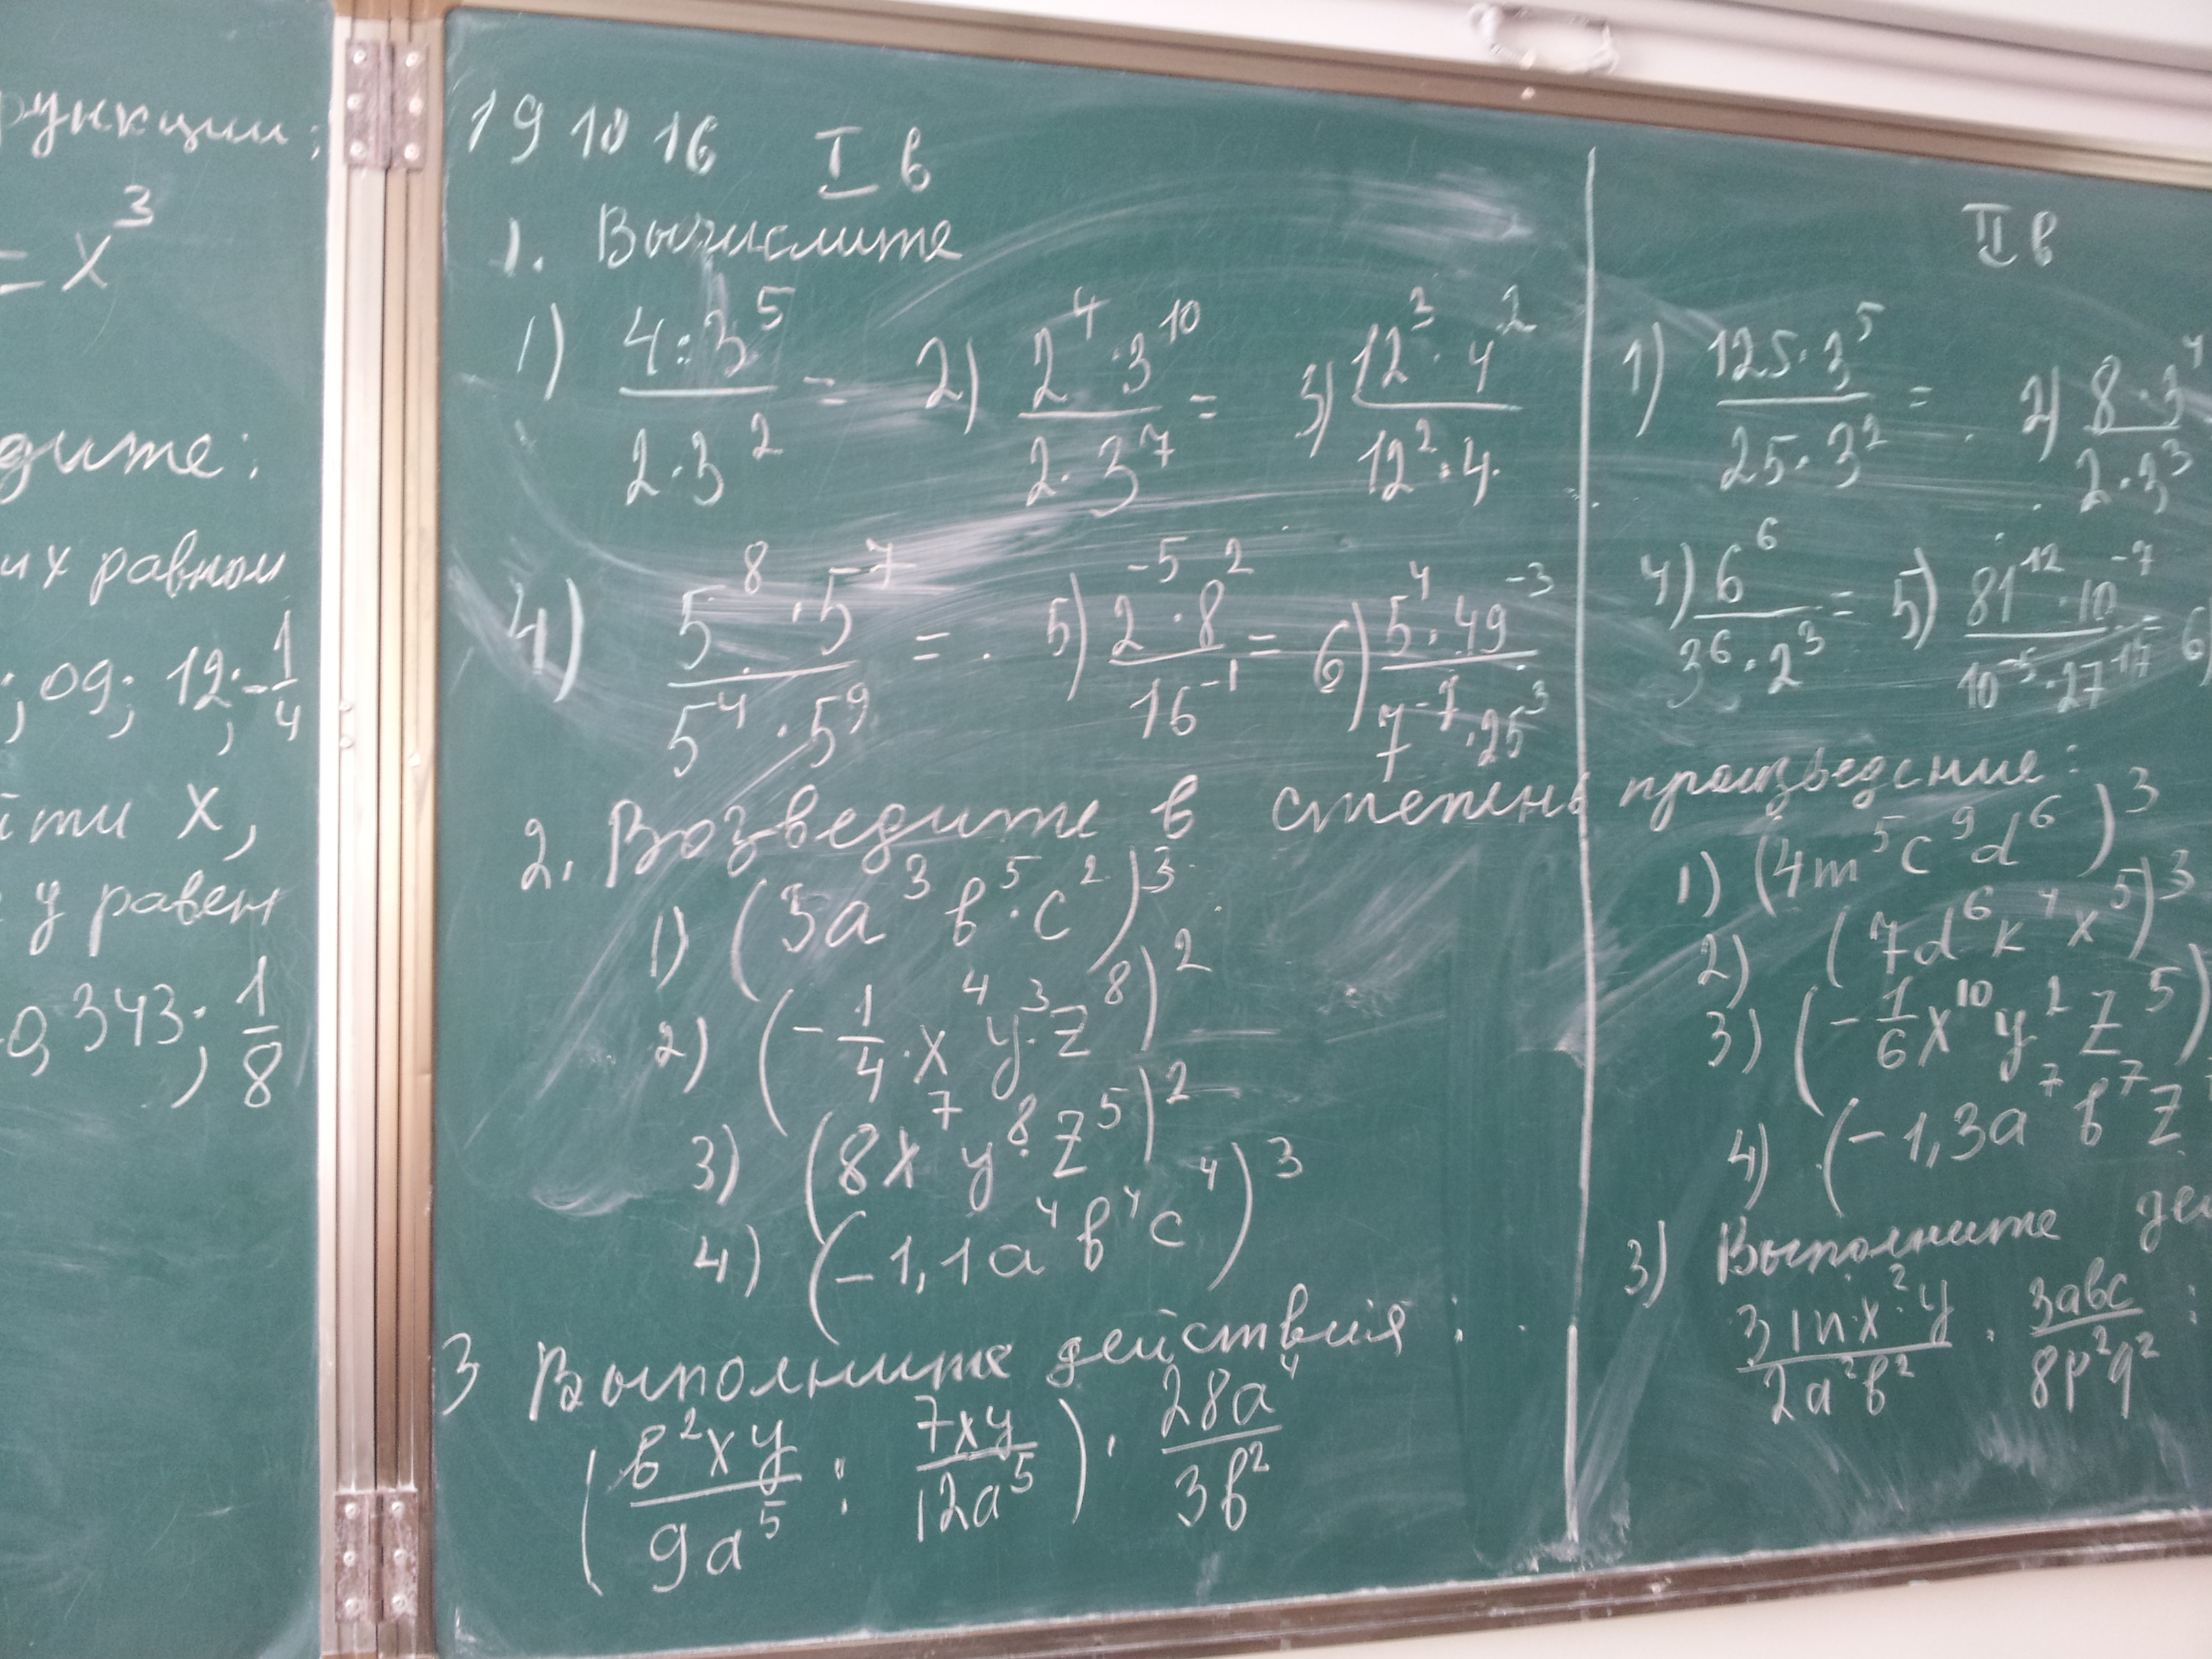 = x³
дите:
их равном
; 09; 12; -1/4
йти x,
y равен
0,343; 1/8
19 10 16 I в
1. Вычислите
1) (4·3⁵)/(2·3²) = 2) (2⁴·3¹⁰)/(2·3⁷) = 3) (12³·4²)/(12²·4)
4) (5⁸·5⁻⁷)/(5⁴·5⁹) = 5) (2⁻⁵·8²)/(16⁻¹) = 6) (5⁴·49⁻³)/(7⁻⁷·25³)
2. Возведите в степень произведение:
1) (3a³b⁵·c²)³
2) (-1/4·x⁴y³·z⁸)²
3) (8x⁷y⁸·z⁵)²
4) (-1,1a⁴b⁴c⁴)³
3 Выполните действия:
(b²xy/9a⁵ : 7xy/12a⁵) · 28a⁴/3b²
II в
1) (125·3⁵)/(25·3²) = 2) (8·3⁴)/(2·3³)
4) 6⁶/(3⁶·2³) = 5) (81¹²·10⁻⁷)/(10⁻⁵·27¹⁷) = 6)
1) (4m⁵c⁹d⁶)³
2) (7d⁶k⁴x⁵)³
3) (-1/6x¹⁰y²z⁵)
4) (-1,3a⁷b⁷z
3) Выполните дей
x²y/2a²b² · 3abc/8p²q² :